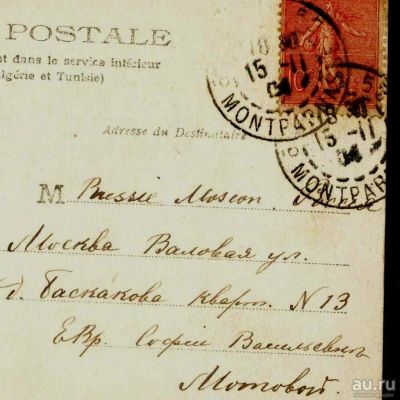 POSTALE
nt dans le service intérieur
lgérie et Tunisie)
10
15-11
04
MONTPARNASSE
15-11
04
MONTPAR
Adresse du Destinataire
M Russie Moscou
Москва Валовая ул.
д. Баскакова кварт. N 13
ЕВр. Софіи Васильевн
Мотовой.
au.ru